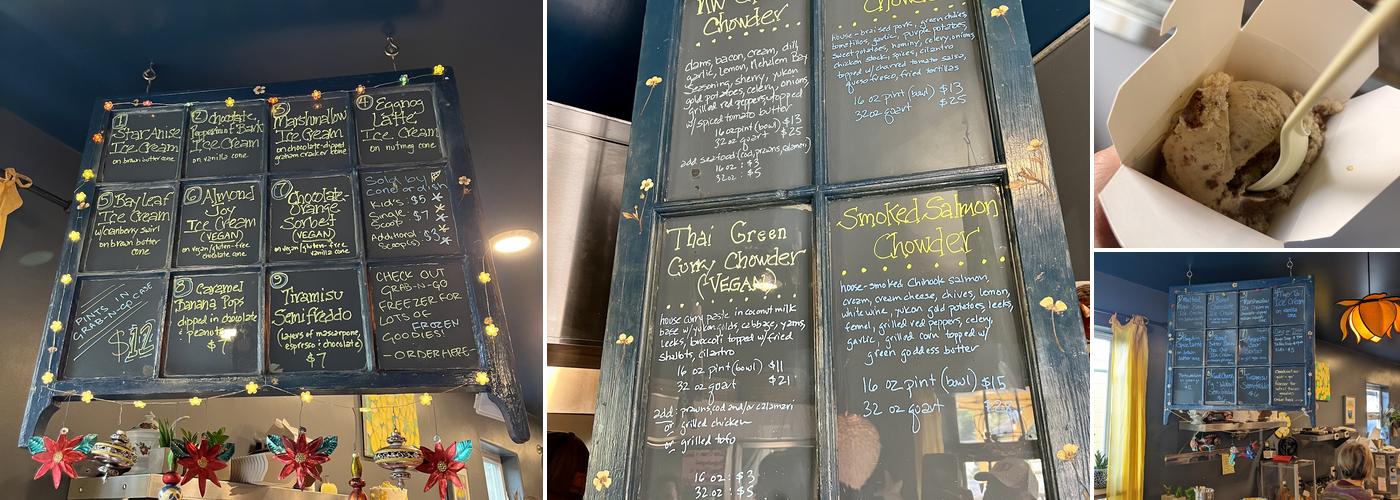 1
Star Anise
Ice Cream
on brown butter cone
2 Chocolate,
Peppermint Bark
Ice Cream
on vanilla cone
3
Marshmallow
Ice Cream
on chocolate-dipped
graham cracker cone
4 Eggnog
Latte
Ice Cream
on nutmeg cone
5 Bay leaf
Ice Cream
w/cranberry swirl
on brown butter
cone
6 Almond
Joy
Ice Cream
(VEGAN)
on vegan/gluten-free
chocolate cone
7 Chocolate-
Orange
Sorbet
(VEGAN)
on vegan/gluten-free
vanilla cone
Sold by
cone or dish
Kid's: $5
Single
Scoop: $7
Additional
Scoop(s): $3
PINTS IN
GRAB-N-GO CASE
$12
8 Caramel
Banana Pops
dipped in chocolate
+ peanuts
$7
9
Tiramisu
Semifreddo
(layers of mascarpone,
espresso + chocolate)
$7
CHECK OUT
GRAB-N-GO
FREEZER FOR
LOTS OF
FROZEN
GOODIES!
-ORDER HERE-
Chowder
clams, bacon, cream, dill,
garlic, lemon, Nehalem Bay
Seasoning, sherry, yukon
gold potatoes, celery, onions,
grilled red peppers, topped
w/spiced tomato butter
16 oz pint (bowl) $13
32 oz quart $25
add seafood (cod, prawns, calamari)
16 oz: $3
32 oz: $5
Chowder
house-braised pork, green chiles,
tomatillos, garlic, purple potatoes,
sweet potatoes, hominy, celery, onions,
chicken stock, spices, cilantro
topped w/ charred tomato salsa,
queso fresco, fried tortillas
16 oz pint (bowl) $13
32 oz quart $25
Thai Green
Curry Chowder
(VEGAN)
house curry paste in coconut milk
base w/ yukon golds, cabbage, yams,
leeks, broccoli topped w/fried
shallots, cilantro
16 oz pint (bowl) $11
32 oz quart $21
add: prawns, cod and/or calamari
or grilled chicken
or grilled tofu
16 oz: $3
32 oz: $5
Smoked Salmon
Chowder
house-smoked Chinook salmon,
cream, cream cheese, chives, lemon,
white wine, yukon gold potatoes, leeks,
fennel, grilled red peppers, celery,
garlic, grilled corn topped w/
green goddess butter
16 oz pint (bowl) $15
32 oz quart